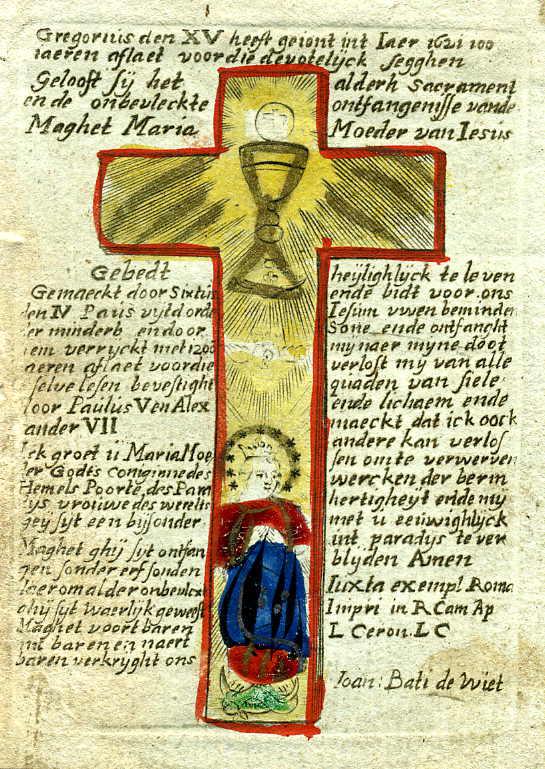 Gregorius den XV heeft geiont int Iaer 1621 100
iaeren aflaet voor die devotelyck segghen
Gelooft sÿ het alderh Sacrament
ende onbevleckte ontfangenisse vande
Maghet Maria Moeder van Iesus
Gebedt
Gemaeckt door Sixtus
den IV Paus vyt d orde
der minderb en door
hem verryckt met 1200
iaeren aflaet voor die
selve lesen bevestight
door Paulus V en Alex
ander VII
Ick groet ü Maria Moe
der Godts Coniginne des
Hemels Poorte, des Para
dys vrouwe des werelts
gey syt een byssonder
Maghet ghÿ syt ontfan
gen sonder erfsonden
daerom alder onbevlext
ghÿ syt Waerlyk geweest
Maghet voort baren
int baren en naert
baren verkryght ons
heÿlighlyck te leven
ende bidt voor ons
Iesum vwen beminden
Sone ende ontfanght
my naer myne doot
verlost my van alle
quaden van siele
ende lichaem ende
maeckt dat ick oock
andere kan verlos
sen om te verwerven
wercken der berm
hertigheyt ende my
met u eeuwighlyck
int paradys te ver
blyden Amen
Iuxta exempl. Roma
Impri in R Cam Ap
L Ceron. L C
Ioan: Bati de Wiet